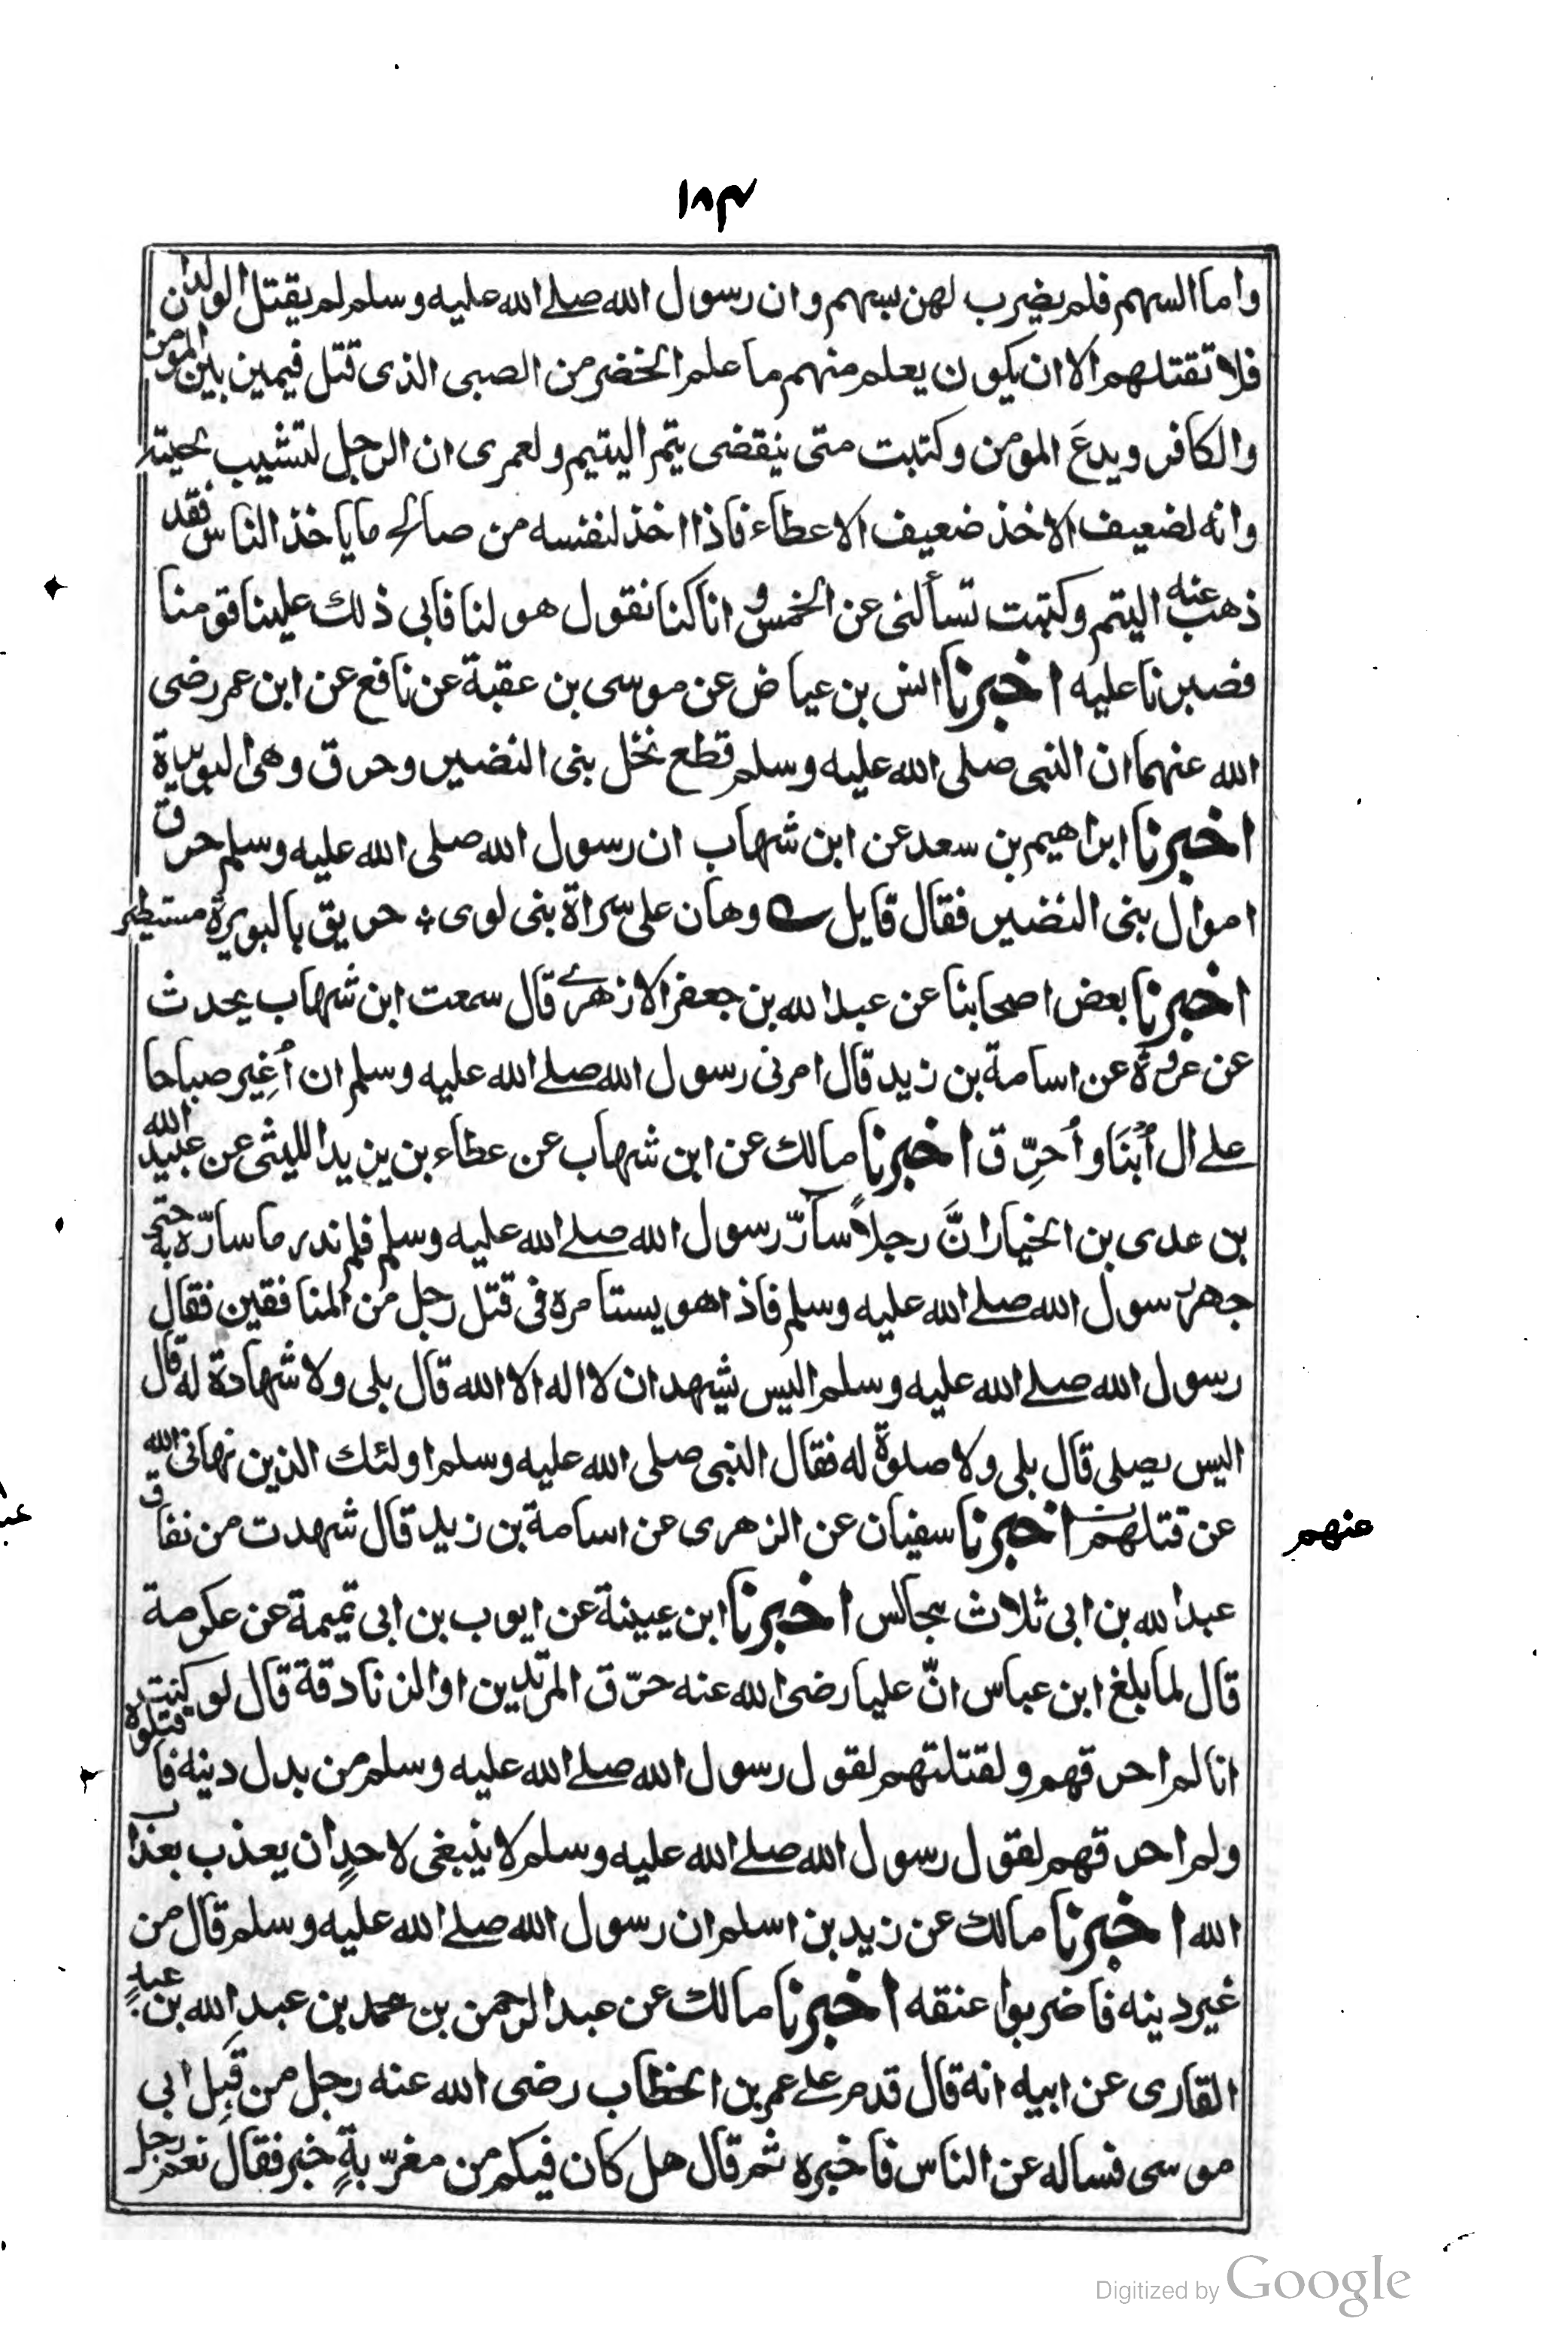 ۱۸۴
واما السهم فلم يضرب لهن بسهم وان رسول الله صلے الله عليه وسلم لم يقتل الولدان
فلا تقتلهم الا ان يكون يعلم منهم ما علم الخضر من الصبى الذى قتل فيميز بين المومن
والكافر ويدعَ المومن وكتبت متى ينقضى يتم اليتيم ولعمرى ان الرجل لتشيب لحيته
وانه لضعيف الاخذ ضعيف الاعطاء فاذا اخذ لنفسه من صالح ما ياخذ الناس فقد
ذهب عنه اليتم وكتبت تسألنى عن الخمس و انا كنا نقول هو لنا فابى ذلك علينا قومنا
فصبرنا عليه اخبرنا انس بن عياض عن موسى بن عقبة عن نافع عن ابن عمر رضى
الله عنهما ان النبى صلى الله عليه وسلم قطع نخل بنى النضير وحرق وهى البويرة
اخبرنا ابراهيم بن سعد عن ابن شهاب ان رسول الله صلى الله عليه وسلم حرق
اموال بنى النضير فقال قايل وهان على سراة بنى لوى ؛ حريق بالبويرة مستطير
اخبرنا بعض اصحابنا عن عبد الله بن جعفر الازهرے قال سمعت ابن شهاب يحدث
عن عروة عن اسامة بن زيد قال امرنى رسول الله صلے الله عليه وسلم ان أُغِير صباحا
علے ال أُبْنَا و أُحرِّق اخبرنا مالك عن ابن شهاب عن عطاء بن يزيد الليثى عن عبيد الله
بن عدى بن الخيار انَّ رجلاً سارّ رسول الله صلے الله عليه وسلم فلم ندر ما سارّه به حتى
جهر رسول الله صلے الله عليه وسلم فاذا هو يستامره فى قتل رجل من المنافقين فقال
رسول الله صلے الله عليه وسلم اليس يشهد ان لا اله الا الله قال بلى ولا شهادة له قال
اليس يصلى قال بلى ولا صلوة له فقال النبى صلى الله عليه وسلم اولئك الذين نهانى الله
عن قتلهم اخبرنا سفيان عن الزهرى عن اسامة بن زيد قال شهدت من نفاق
عنهم
عبد الله بن ابى ثلاث مجالس اخبرنا ابن عيينة عن ايوب بن ابى تميمة عن عكرمة
قال لما بلغ ابن عباس انّ عليا رضى الله عنه حرّق المرتدين او الزنادقة قال لو كنت
انا لم احرقهم ولقتلتهم لقول رسول الله صلے الله عليه وسلم من بدل دينه فاقتلوه
ولم احرقهم لقول رسول الله صلے الله عليه وسلم لا ينبغى لاحدٍ ان يعذب بعذاب
الله اخبرنا مالك عن زيد بن اسلم ان رسول الله صلے الله عليه وسلم قال من
غير دينه فاضربوا عنقه اخبرنا مالك عن عبد الرحمن بن محمد بن عبد الله بن عبدٍ
القارى عن ابيه انه قال قدم علے عمر بن الخطاب رضى الله عنه رجل من قِبل ابى
موسى فساله عن الناس فاخبره ثم قال هل كان فيكم من مغرّبةٍ خبر فقال نعم رجل
Digitized by Google